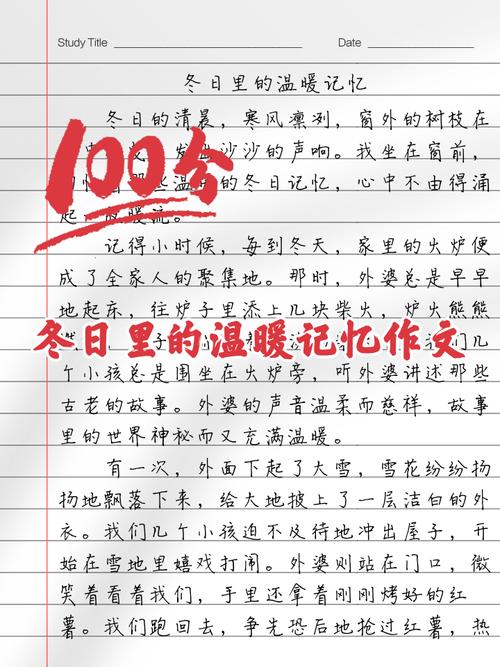 Study Title
Date
冬日里的温暖记忆
冬日的清晨，寒风凛冽，窗外的树枝在
沙沙的声响。我坐在窗前，
的冬日记忆，心中不由得涌
起 暖流。
100分
记得小时候，每到冬天，家里的火炉便
成了全家人的聚集地。那时，外婆总是早早
地起床，往炉子里添上几块柴火，炉火熊熊
冬日里的温暖记忆作文
个小孩总是围坐在火炉旁，听外婆讲述那些
古老的故事。外婆的声音温柔而慈祥，故事
里的世界神秘而又充满温暖。
有一次，外面下起了大雪，雪花纷纷扬
扬地飘落下来，给大地披上了一层洁白的外
衣。我们几个小孩迫不及待地冲出屋子，开
始在雪地里嬉戏打闹。外婆则站在门口，微
笑着看着我们，手里还拿着刚刚烤好的红
薯。我们跑回去，争先恐后地抢过红薯，热